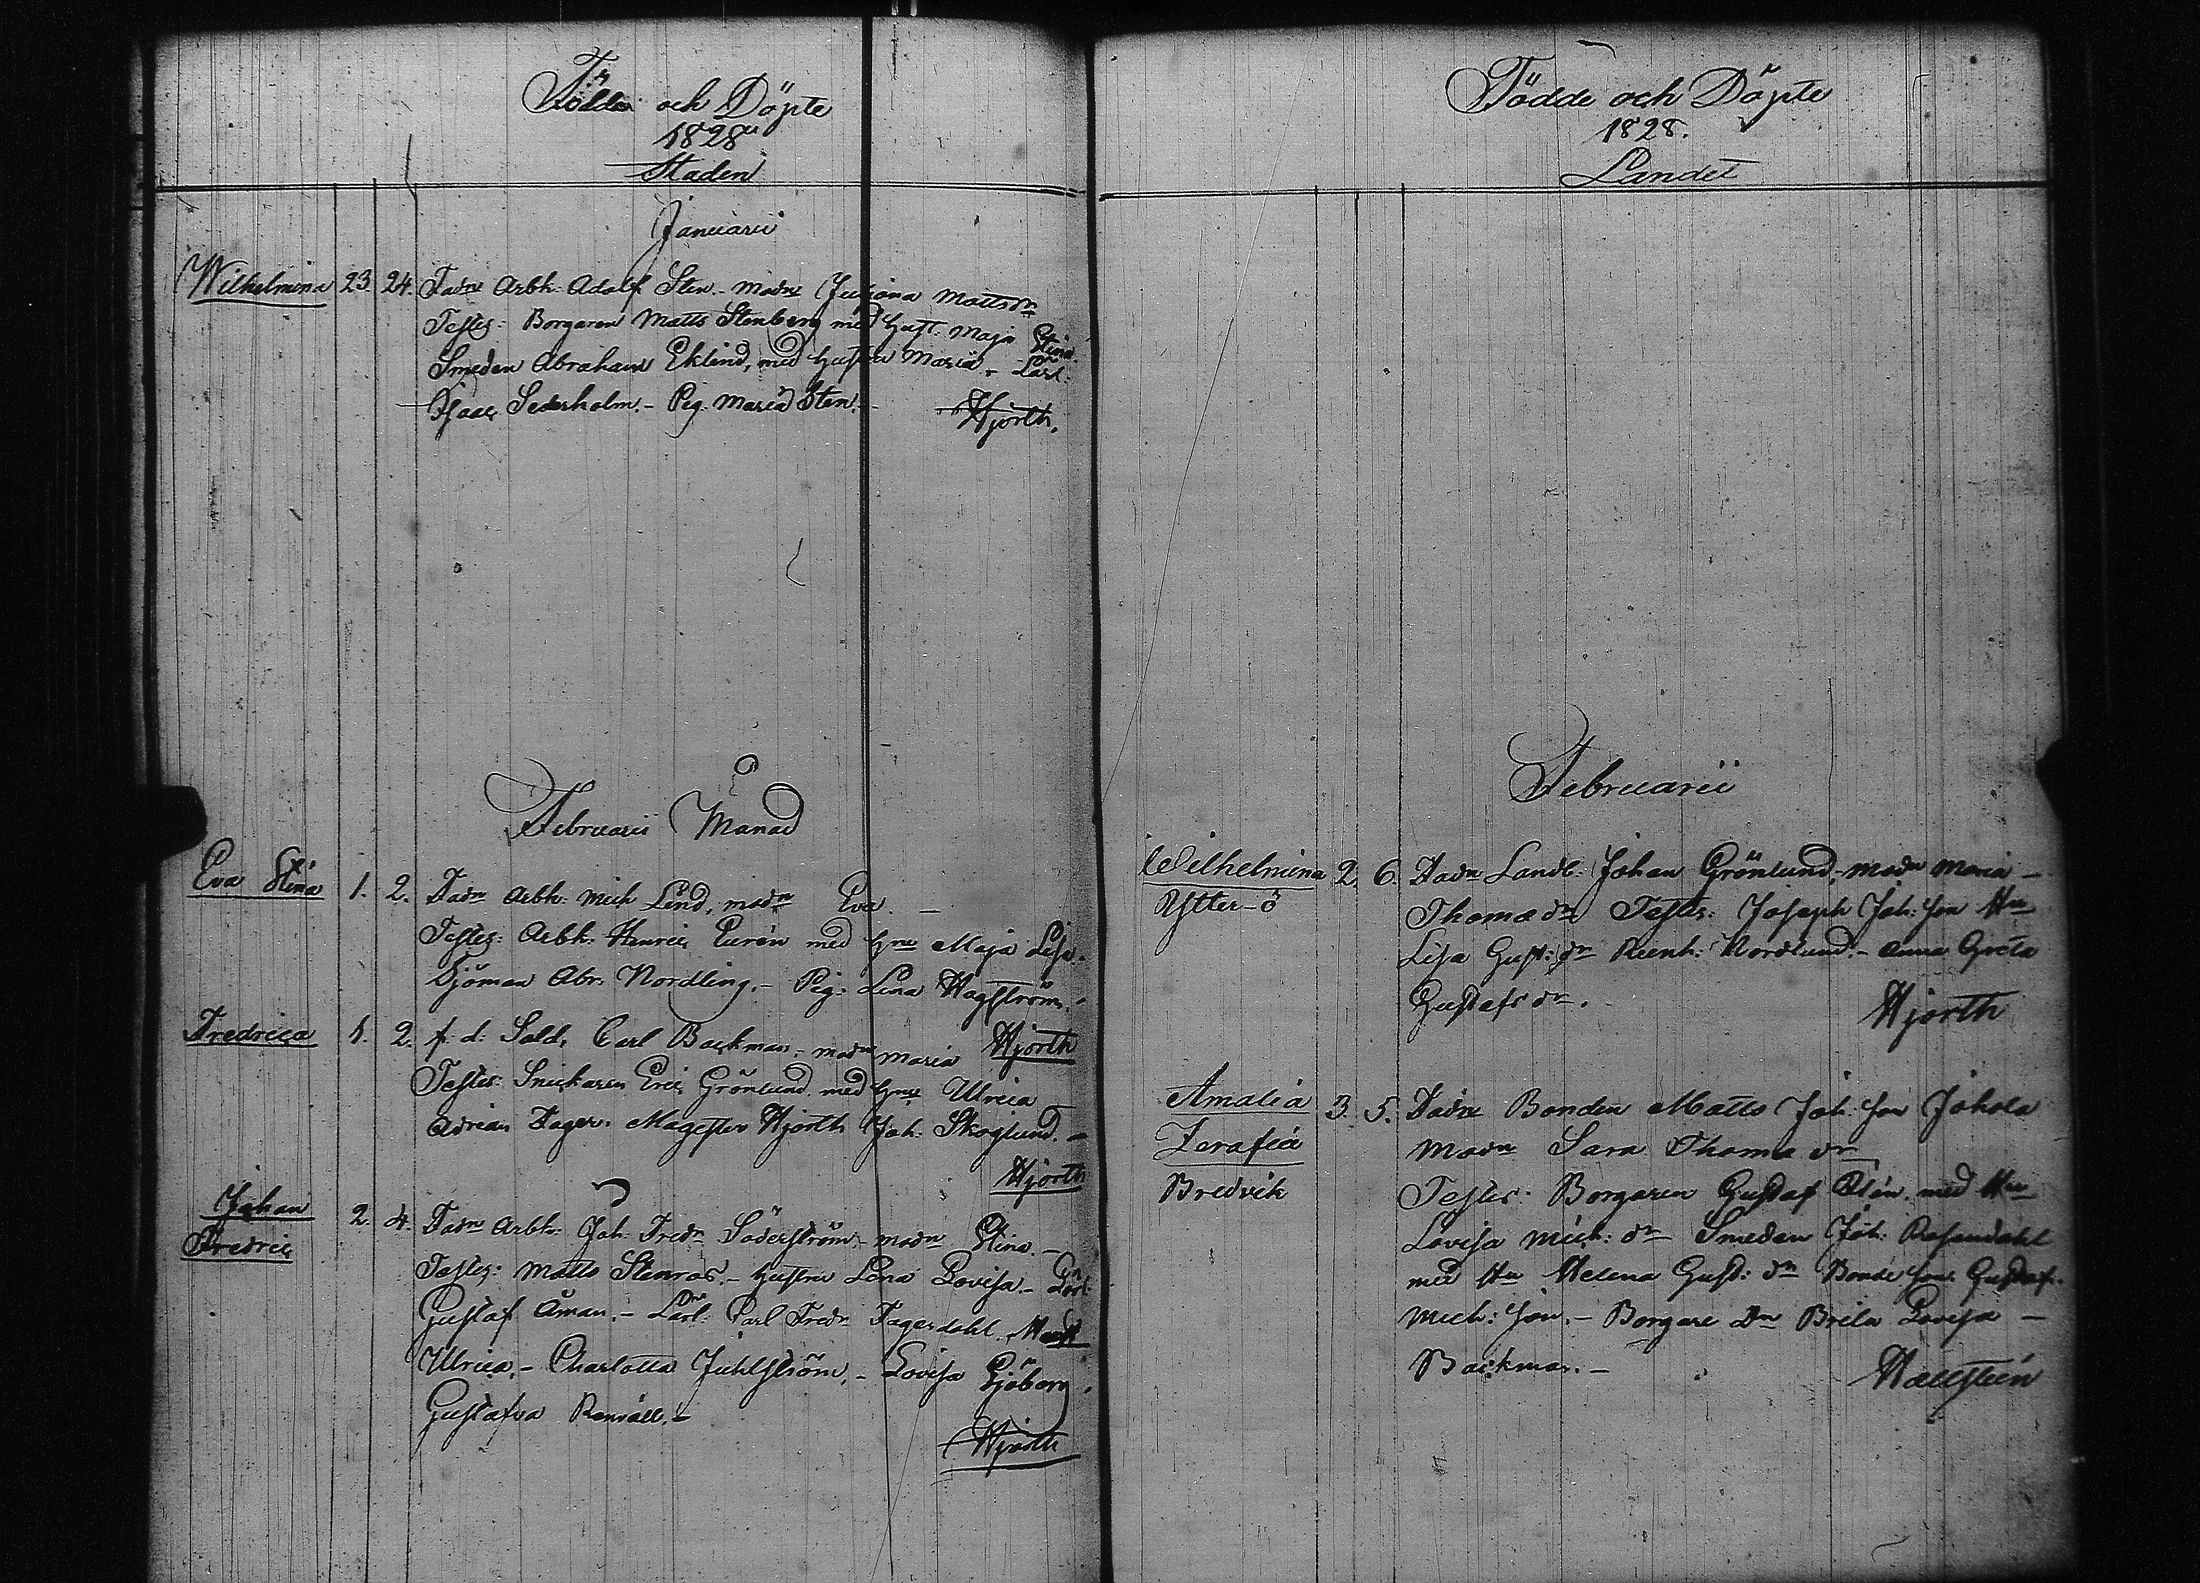 Födde och Döpte
1828
Staden
Januarii
Wilhelmina 23. 24. Fadn Arbk. Adolf Sten. Modn Juliana Mattsdr
Testes: Borgaren Matts Stenberg med Hust. Maja Stina.
Smeden Abraham Eklind, med Hustru Maria. Lärl:
Isaac Sederholm. Pig. Maria Sten.
Hjorth.
Februarii Månad
Eva Stina 1. 2. Fadn Arbk. Mich Lind, modn Eva.
Testes: Arbk. Henric Eurén med Hru Maja Lisa.
Sjöman Abr. Nordling. Pig: Lena Hagström.
Hjorth
Fredrica 1. 2. f. d. Sold. Carl Backman. modn Maria
Testes: Snickaren Eric Grönlund med Hru Ulrica
Adrian Fager. Magister Hjorth Joh. Skoglund.
Hjorth
Johan
Fredric
2. 4. Fadn Arbk. Joh. Fredr Söderström modn Stina.
Testes: Matts Stenros. Hustru Lena Lovisa. Lärl:
Gustaf Åman. Lärl: Carl Fredr Fagerdahl.
Ulrica. Charlotta Juhlström. Lovisa Sjöborg.
Gustafva Renvall.
Hjorth
Födde och Döpte
1828.
Landet
Februarii
Wilhelmina 2. 6. Fadn Landb: Johan Grönlund, modn Maria
Ytter-ö
Thomæ dr Testes: Joseph Joh: son Hu
Lisa Gust: dr Reenh: Nordlund. Anna Greta
Gustafs dr.
Hjorth
Amalia
Serafia
Bredvik
3. 5. Fadn Bonden Matts Joh: son Johola
Modn Sara Thomæ dr
Testes: Borgaren Gustaf med Hu
Lovisa Mich: dr Smeden Joh: Rosendahl
med Hu Helena Gust: dr Bonde son Gustaf
Mich: son. Borgare Dr Brita Lovisa
Backman.
Hallstén